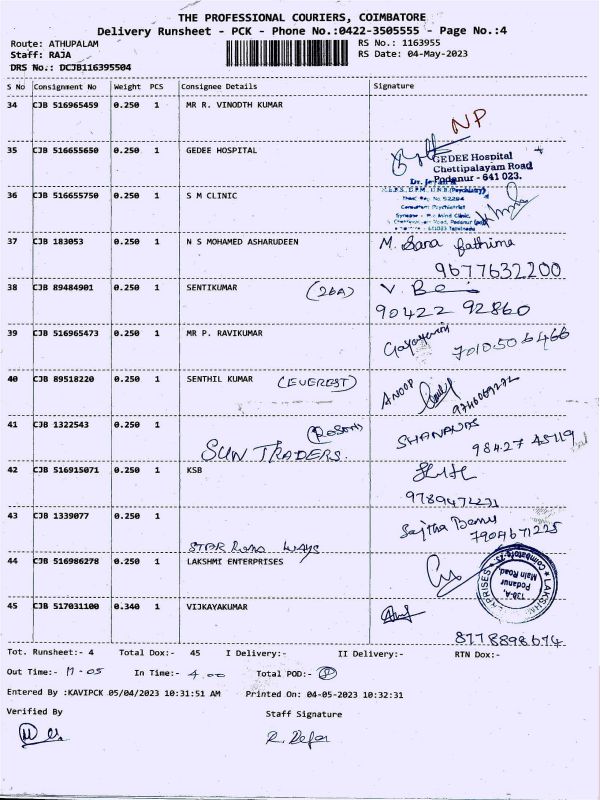 THE PROFESSIONAL COURIERS, COIMBATORE
Delivery Runsheet - PCK - Phone No.:0422-3505555 - Page No.:4
Route: ATHUPALAM RS No.: 1163955
Staff: RAJA RS Date: 04-May-2023
DRS No.: DCJB116395504
S No Consignment No Weight PCS Consignee Details Signature
34 CJB 516965459 0.250 1 MR R. VINODTH KUMAR NP
35 CJB 516655650 0.250 1 GEDEE HOSPITAL
GEDEE Hospital
Chettipalayam Road
Podanur - 641 023.
36 CJB 516655750 0.250 1 S M CLINIC
37 CJB 183053 0.250 1 N S MOHAMED ASHARUDEEN M. Sana fathima
9677632200
38 CJB 89484901 0.250 1 SENTIKUMAR
90422 92860
39 CJB 516965473 0.250 1 MR P. RAVIKUMAR
7010506466
40 CJB 89518220 0.250 1 SENTHIL KUMAR (EVEREST) ANOOP
41 CJB 1322543 0.250 1 SHANAVAS
SUN TRADERS 98427 45119
42 CJB 516915071 0.250 1 KSB
9789471231
43 CJB 1339077 0.250 1 Sajitha Banu
7904671225
44 CJB 516986278 0.250 1 LAKSHMI ENTERPRISES
45 CJB 517031100 0.340 1 VIJKAYAKUMAR
8778898674
Tot. Runsheet:- 4 Total Dox:- 45 I Delivery:- II Delivery:- RTN Dox:-
Out Time:- 11-05 In Time:- 4.00 Total POD:-
Entered By :KAVIPCK 05/04/2023 10:31:51 AM Printed On: 04-05-2023 10:32:31
Verified By Staff Signature